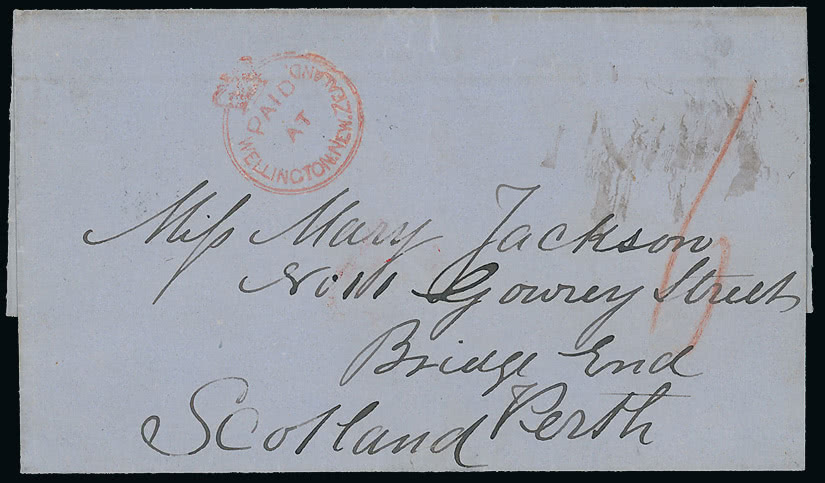 PAID
AT
WELLINGTON.NEW.ZEALAND
6
Miss Mary Jackson
No 11 Gowrey Street
Bridge End
Perth
Scotland